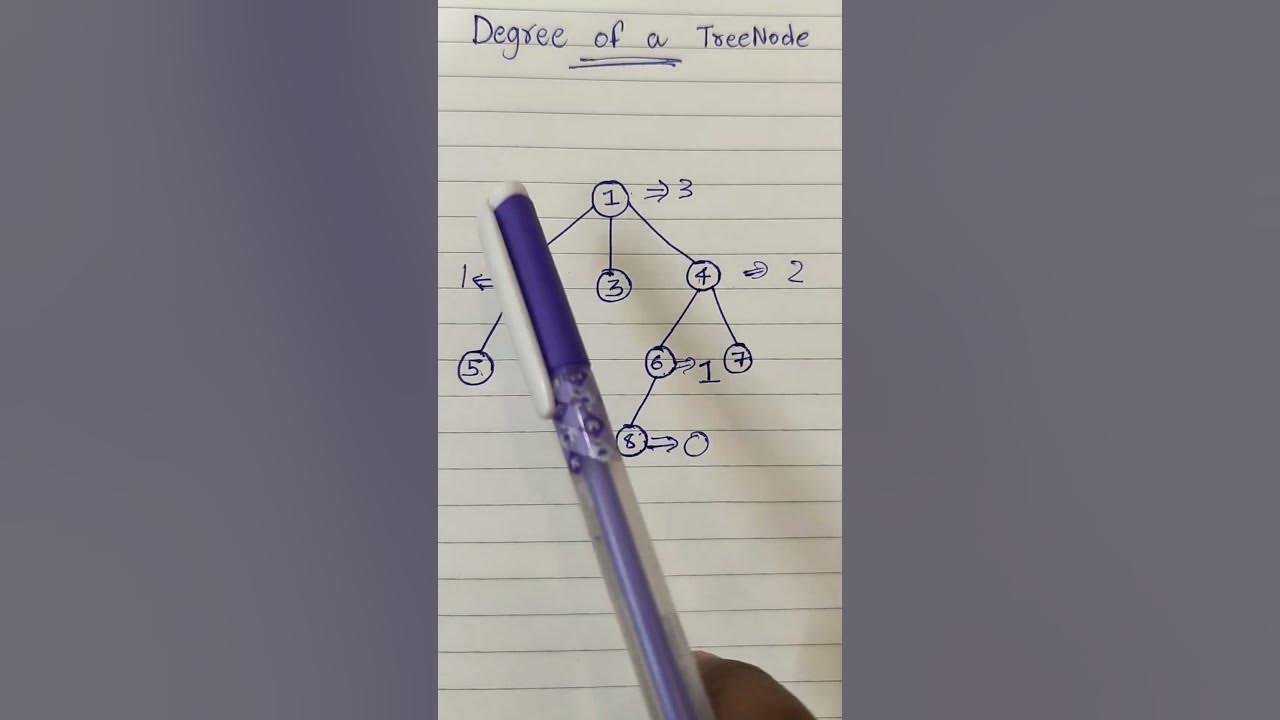 Degree of a TreeNode
1 ⇒ 3
1 ⇐
3
4 ⇒ 2
5
6 ⇒ 1
7
8 ⇒ 0